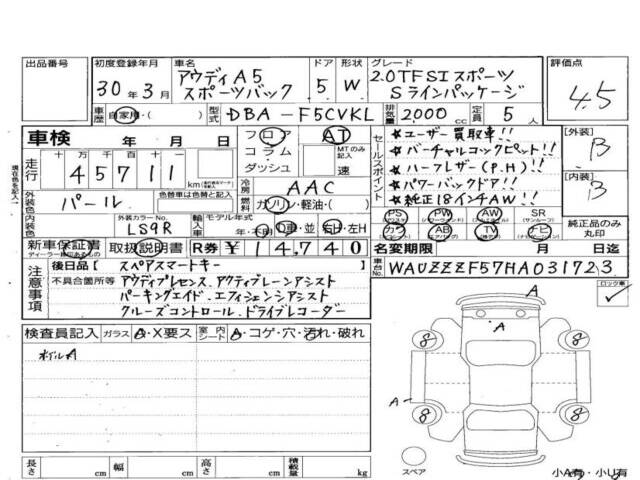 出品番号
初度登録年月
30年3月
車名
アウディA5
スポーツバック
ドア
5
形状
W
グレード
2.0TFSIスポーツ
Sラインパッケージ
評価点
4.5
車歴
自家用・( )
型式
DBA-F5CVKL
排気量
2000cc
定員
5人
車検
年 月 日
フロア
コラム
ダッシュ
AT
MTのみ記入
速
走行
十万 万 千 百 十 一
45711km
セールスポイント
★ユーザー買取車!!
★バーチャルコックピット!!
★ハーフレザー(P.H)!!
★パワーバックドア!!
★純正18インチAW!!
[外装]
B
[内装]
B
外装色
パール
色替車は色替と記入
冷房
AAC
燃料
ガソリン・軽油・( )
内装色
外装カラーNo.
LS9R
輸入車
モデル年式
年・不明
D車・並
右H・左H
PS
PW
AW
SR
(サンルーフ)
カワ
AB
TV
ナビ
純正品のみ
丸印
新車保証書
ディーラー捺印あるもの
取扱説明書
R券
¥14,740
名変期限
月 日迄
注意事項
後日品【 スペアスマートキー
不具合箇所等
アウディプレセンス.アクティブレーンアシスト
パーキングエイド.エフィシェンシアシスト
クルーズコントロール.ドライブレコーダー
車台No.
WAUZZZF57HA031723
ロック車
検査員記入
ガラス
A・X要ス
室内シート
A・コゲ・穴・汚れ・破れ
ホイルA
A
8
8
A
8
8
スペア
長さ cm
幅 cm
高さ cm
積載量 kg
小A有・小U有
現在色を記入